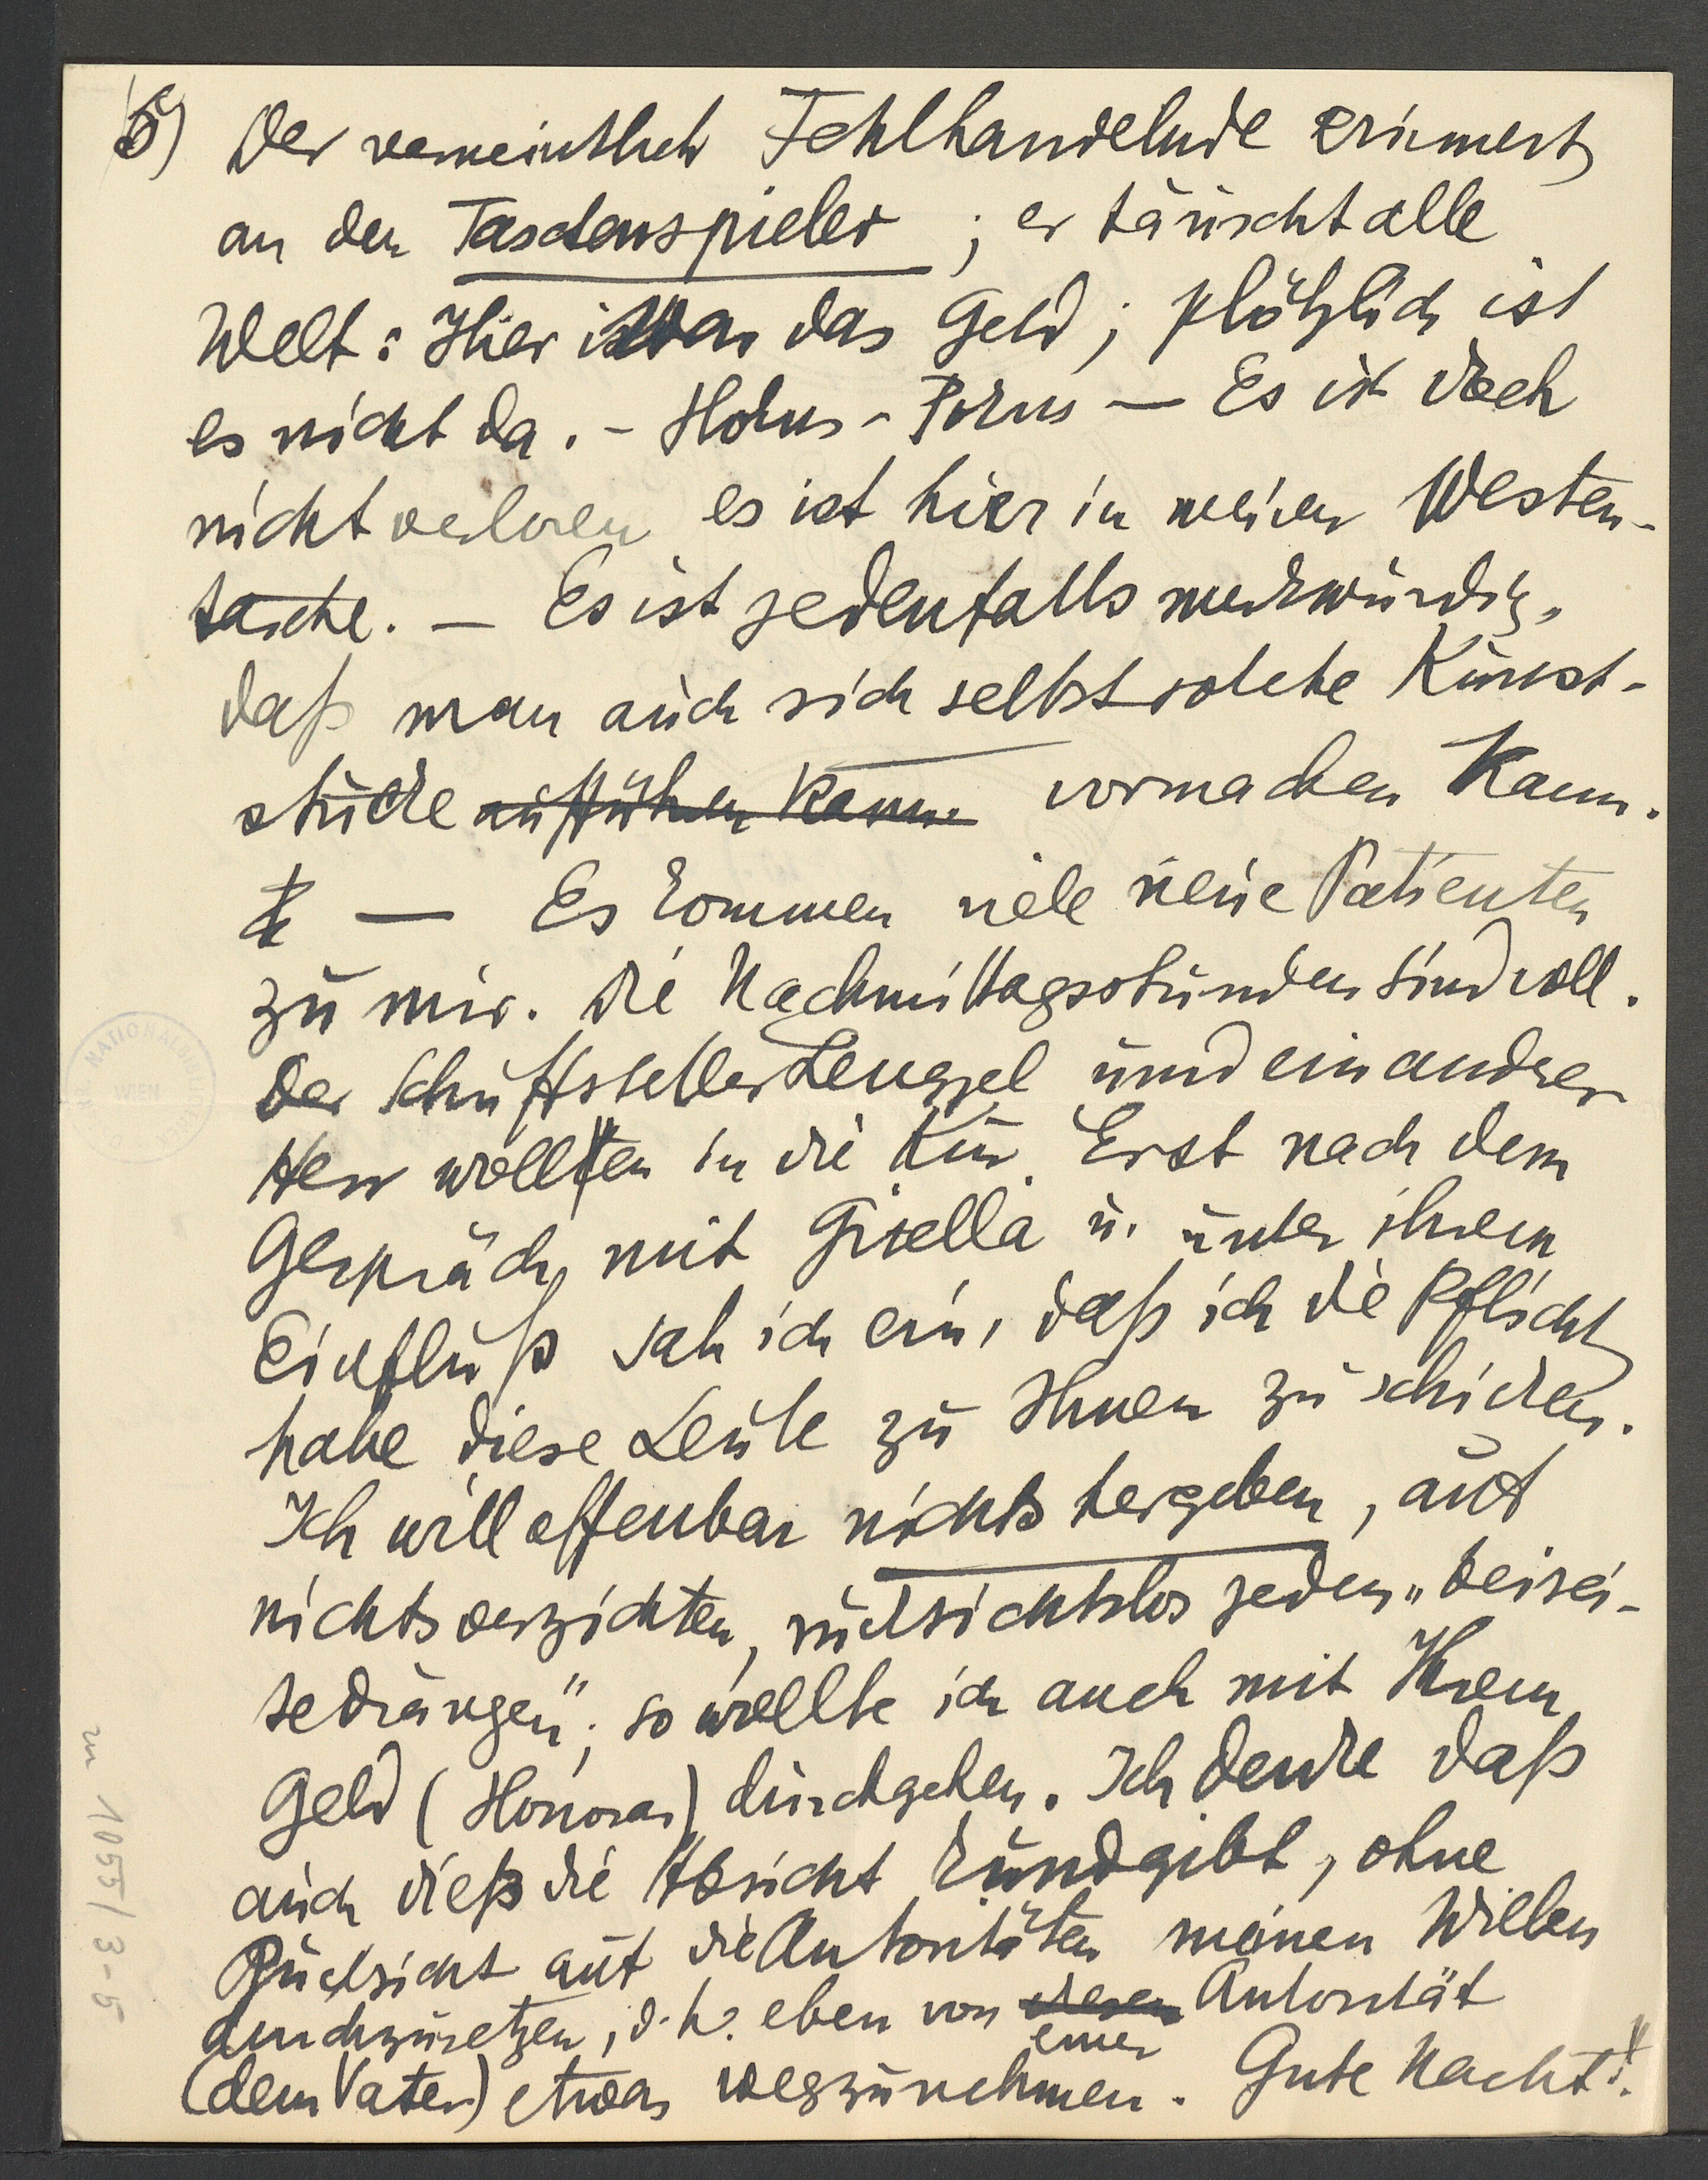 5) Der vermeintlich Fehlhandelnde erinnert
an den Taschenspieler; er täuscht alle
Welt: Hier war das Geld; plötzlich ist
es nicht da. – Hokus-Pokus — Es ist doch
nicht verloren es ist hier in meiner Westen-
tasche. — Es ist jedenfalls merkwürdig,
daß man auch sich selbst solche Kunst-
stücke aufführen kann vormachen kann.
— Es kommen viele neue Patienten
zu mir. Die Nachmittagsstunden sind voll.
Der Schriftsteller Lengyel und ein andrer
Herr wollten in die Kur. Erst nach dem
Gespräch mit Gisella u. unter ihrem
Einfluß sah ich ein, daß ich die Pflicht
habe diese Leute zu Ihnen zu schicken.
Ich will offenbar nichts hergeben, auf
nichts verzichten, rücksichtslos jeden „beisei-
tedrängen"; so wollte ich auch mit Ihrem
Geld (Honorar) durchgehen. Ich denke daß
auch dieß die Absicht kundgibt, ohne
Rücksicht auf die Autoritäten meinen Willen
durchzusetzen, d.h. eben von diesen Autorität
einer
(dem Vater) etwas wegzunehmen. Gute Nacht!
NATIONALBIBLIOTHEK
WIEN
1053/3-5